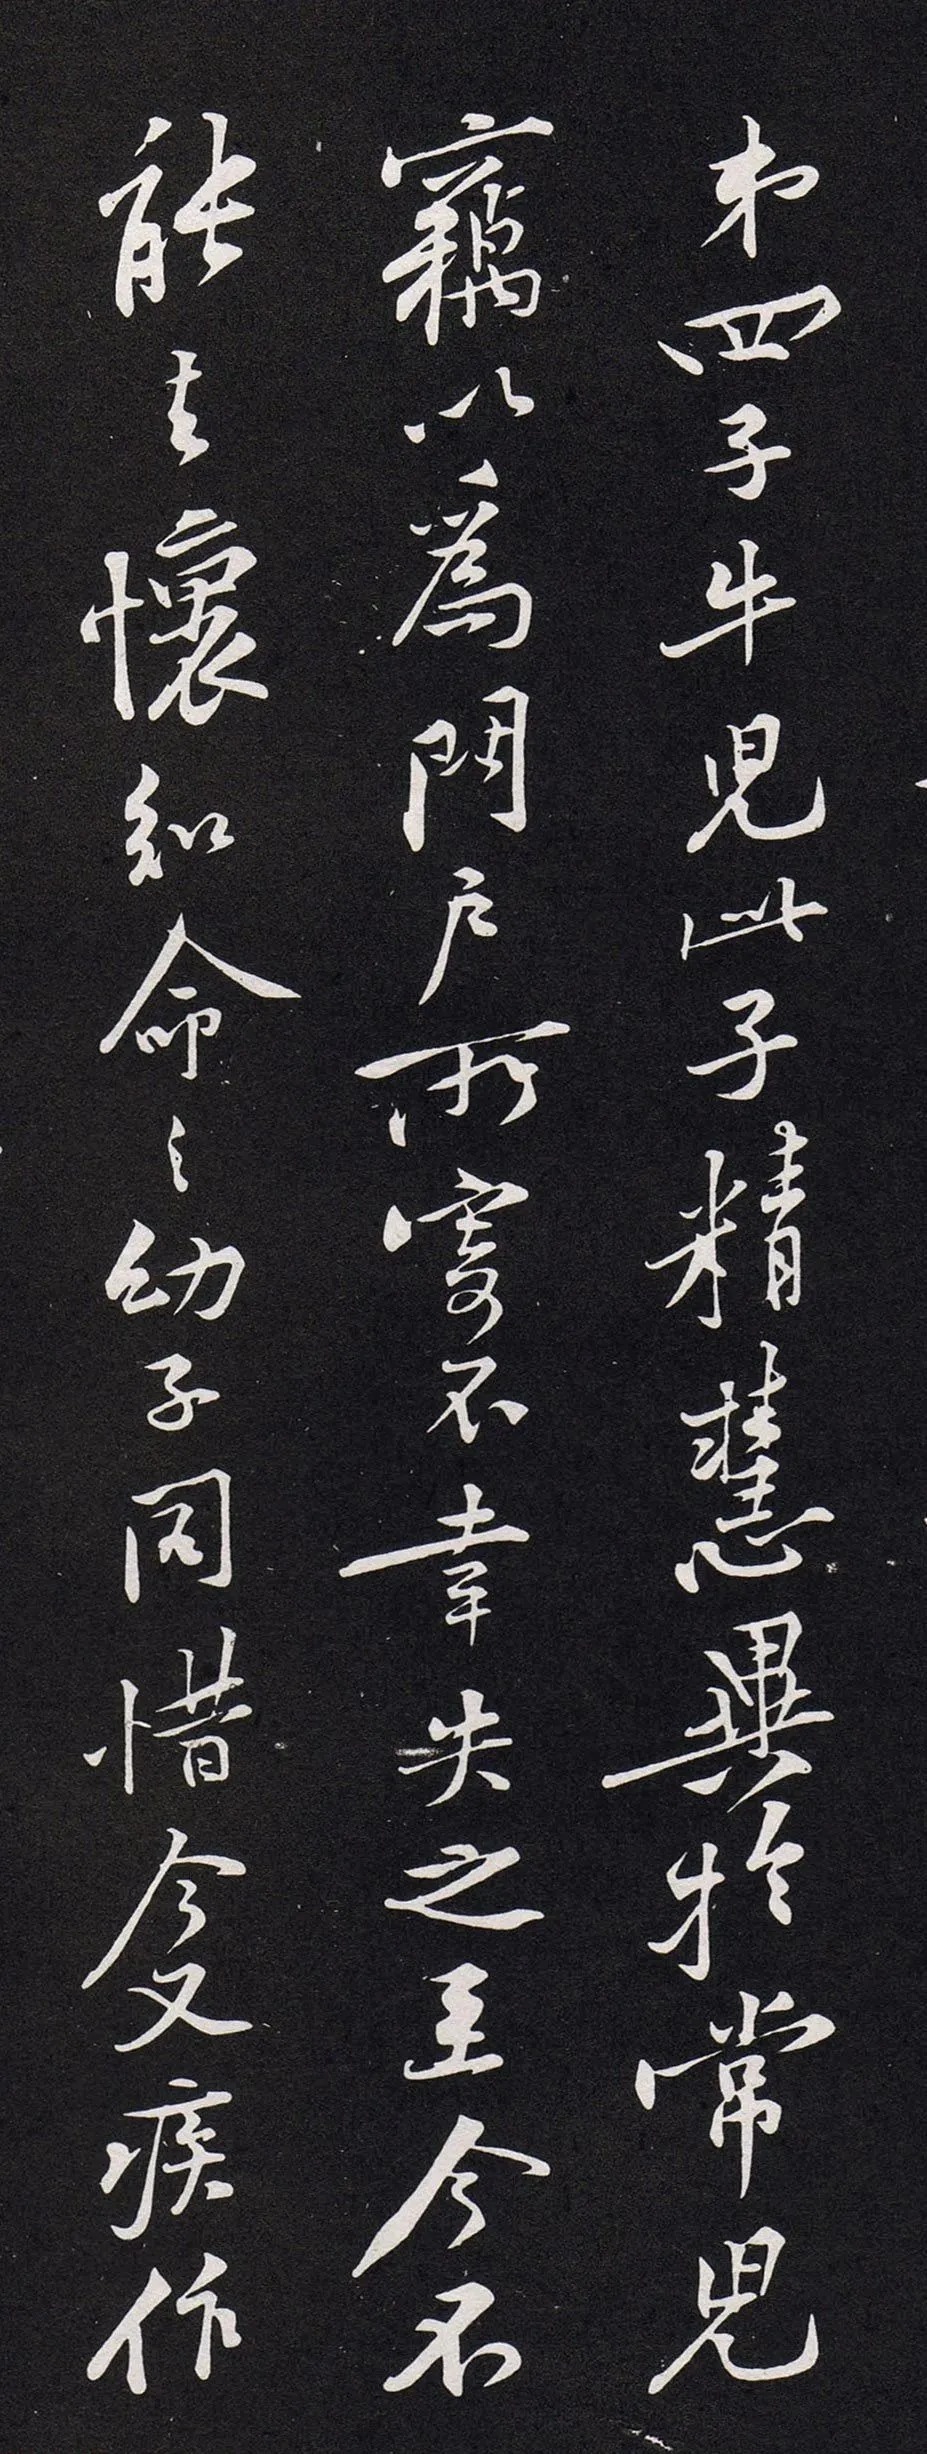 弟四子牛兒此子精慧異於常兒
竊以為門戶所寄不幸失之至今不
能去懷知命之幼子同惜今又疾作